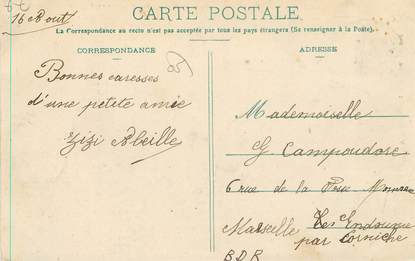 16 Aout
CARTE POSTALE.
La Correspondance au recto n'est pas acceptée par tous les pays étrangers (Se renseigner à la Poste).
CORRESPONDANCE
ADRESSE
Bonnes caresses
d'une petite amie
Zizi Abeille
Mademoiselle
G Campoudore
6 rue de la
Marseille Les Endoume
par Corniche
BDR